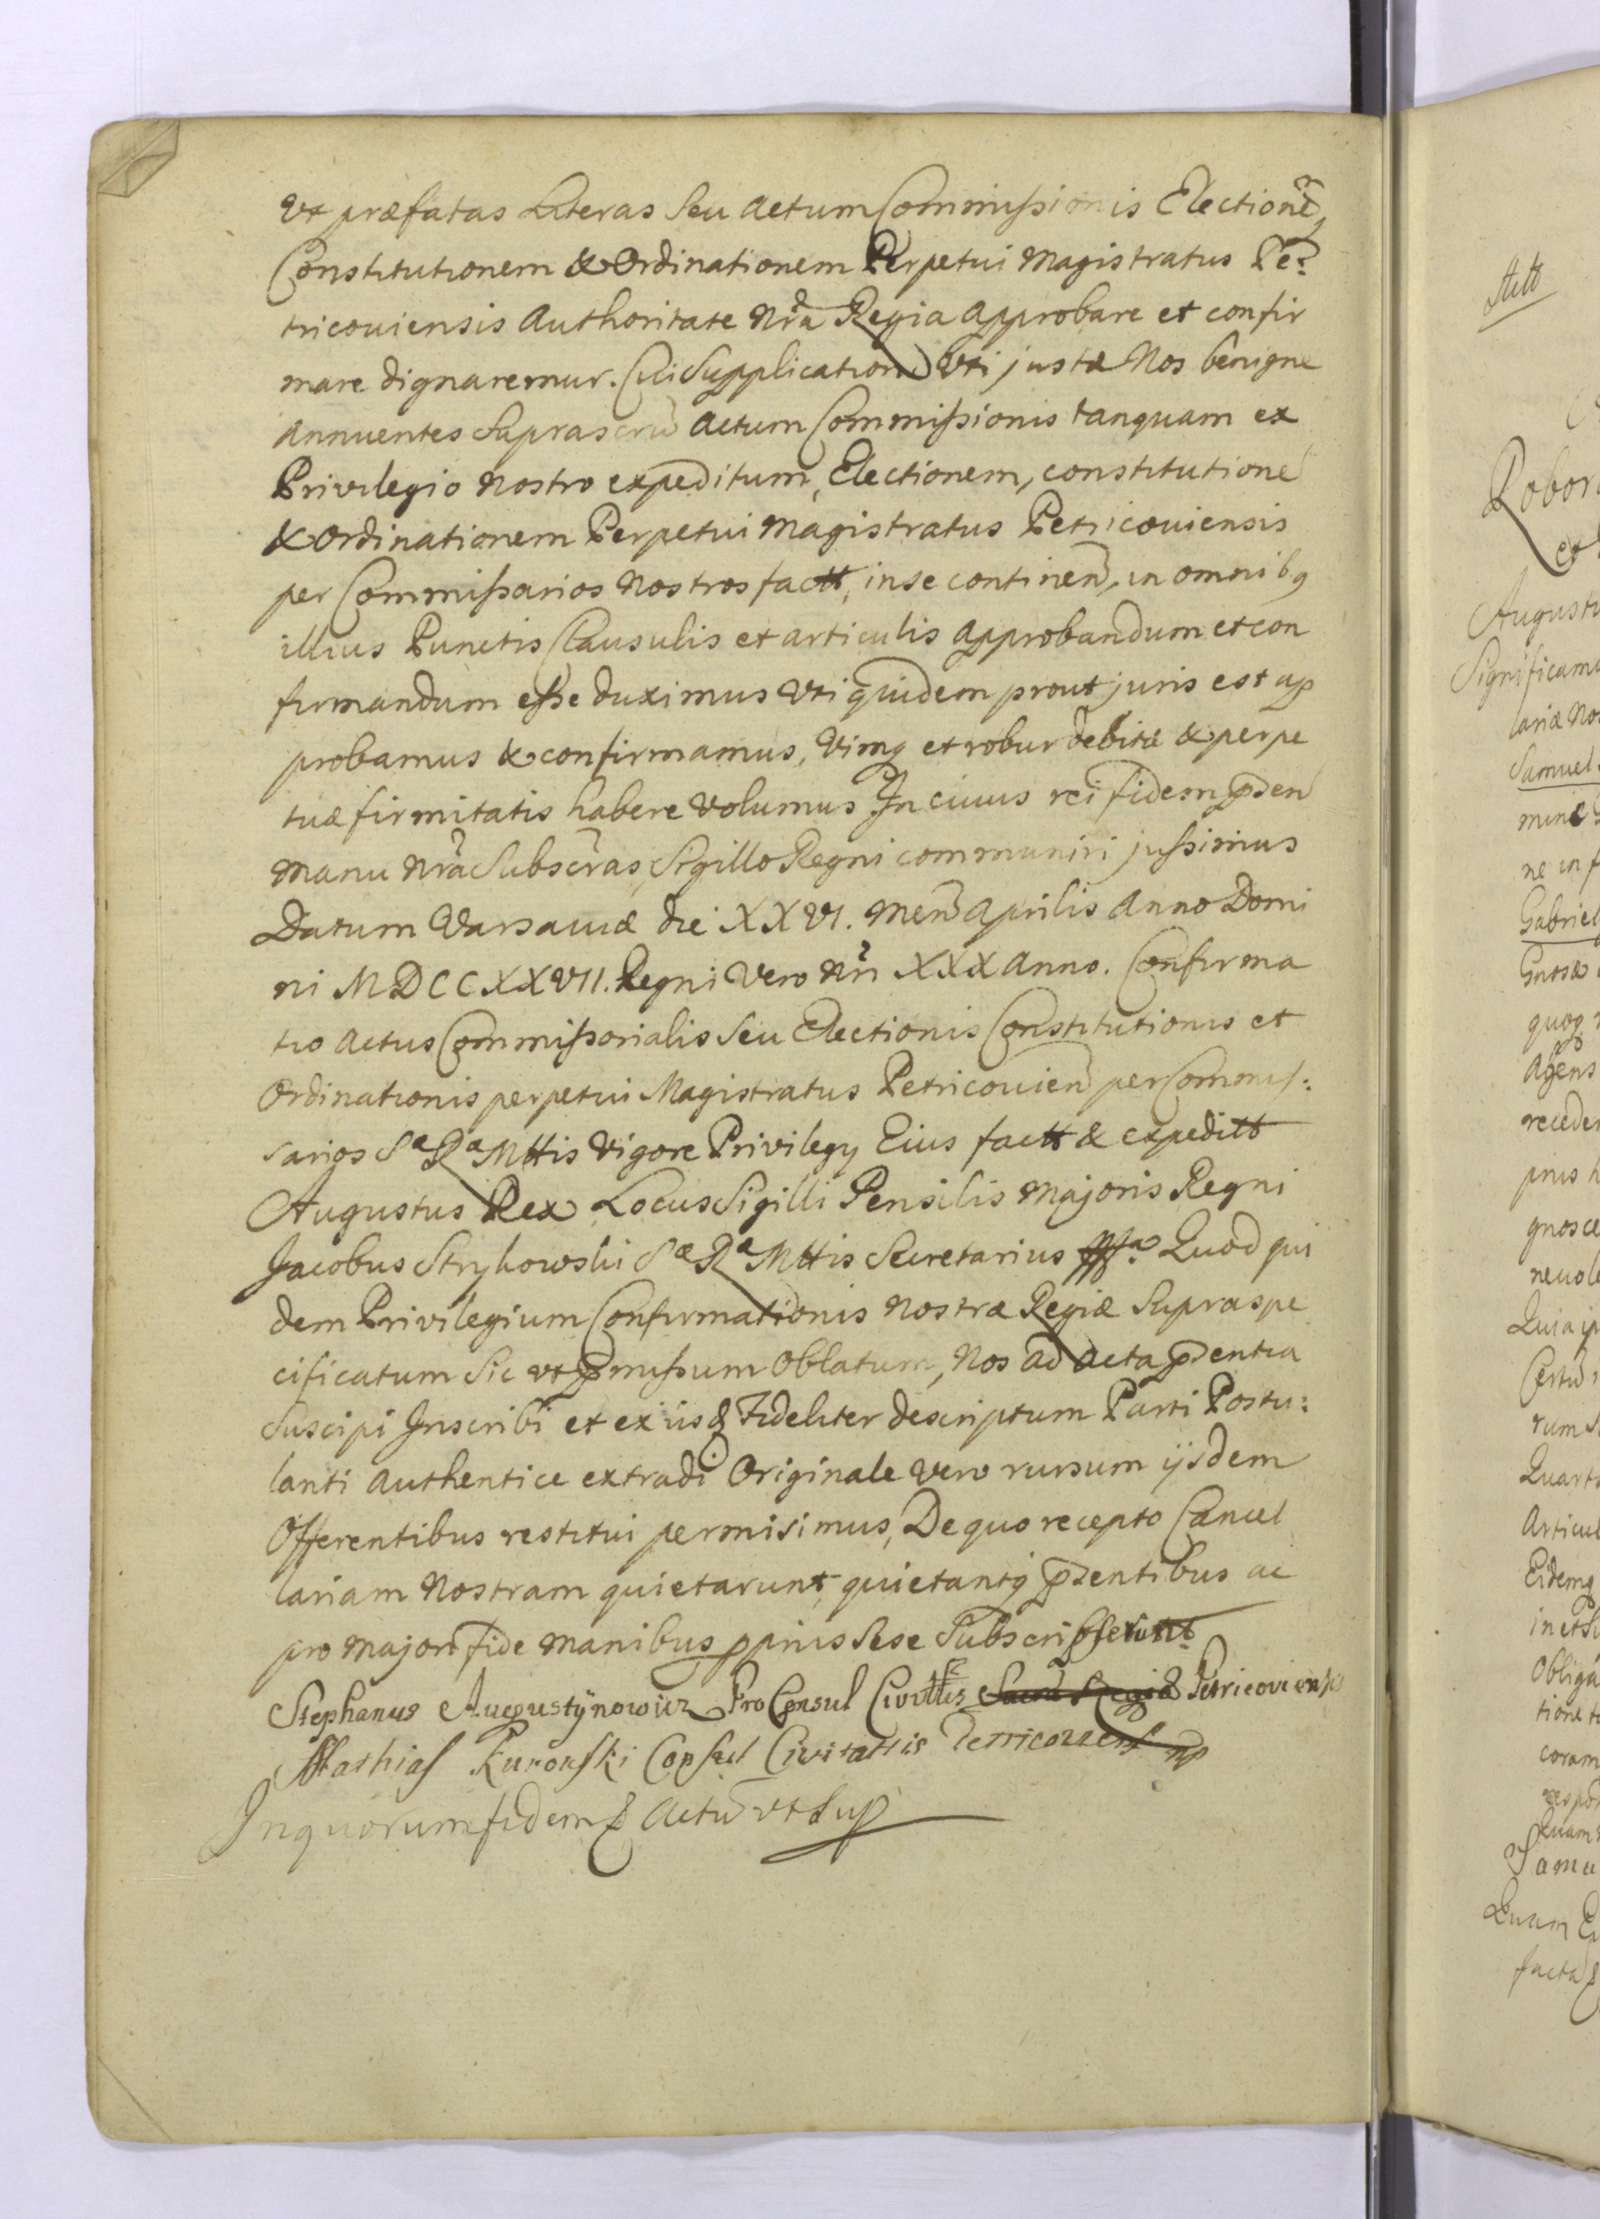 Vt præfatas Literas Seu Actum Commissionis Electionē,
Constitutionem & Ordinationem Perpetui Magistratus Pe:
tricoviensis Authoritate Nrã Regia approbare et confir
mare dignaremur. Cui Supplicationi Vti justæ Nos benigne
Annuentes Suprascrm̃ Actum Commissionis tanquam ex
Privilegio Nostro expeditum, Electionem, constitutionē
& Ordinationem Perpetui Magistratus Petricoviensis
per Commissarios Nostros factt, in se continen̄, in omnibq
illius Punctis Clausulis et articulis approbandum et con
firmandum esse duximus Vti quidem prout juris est ap
probamus & confirmamus, Vimq et robur debitæ & perpe
tuæ firmitatis habere Volumus In cuius rei fidem p̄sen̄
Manu Nrã Subscr̃as, Sigillo Regni communiri jussimus
Datum Varsaviæ die XXVI. Men̄ Aprilis Anno Domi
ni MDCCXXVII. Regni Vero Nri XXX Anno. Confirma
tio Actus Commissorialis Seu Electionis Constitutionis et
Ordinationis perpetui Magistratus Petricovien̄ per Commis:
sarios Sæ Ræ Mttis Vigore Privilegy Eius factt & expeditt
Augustus Rex Locus Sigilli Pensilis Majoris Regni
Jacobus Strykowski Sæ Ræ Mttis Secretarius Quod qui
dem Privilegium Confirmationis Nostræ Regiæ Supraspe
cificatum Sic vt p̄missum Oblatum, Nos ad Acta p̄sentia
Suscipi Inscribi et ex iisd Fideliter descriptum Parti Postu:
lanti Authentice extradi Originale Vero rursum ijsdem
Offerentibus restitui permisimus, De quo recepto Cancel
lariam Nostram quietarunt, quietantq p̄sentibus ac
pro majori fide manibus p̄prius Sese Subscripserunt
Stephanus Augustÿnowicz ProConsul Civittis Sacræ Regiæ Petricoviensis
Mathias Kurowski Consul Civitattis Petricoviens mp
In quorum fidem & Actu vt Sup
Actt
Robor
et
Augustu
Significamu
lariæ No
Samuel
minæ
ne in f
Gabriel
quoq
Agens
receden
prius h
gnosce
nevole
Quia ip
Certu
rum S
Quarto
Articul
Eidemq
in et Su
Obliga
tione t
coram
respo
Quam
Samu
Quam E
facta &